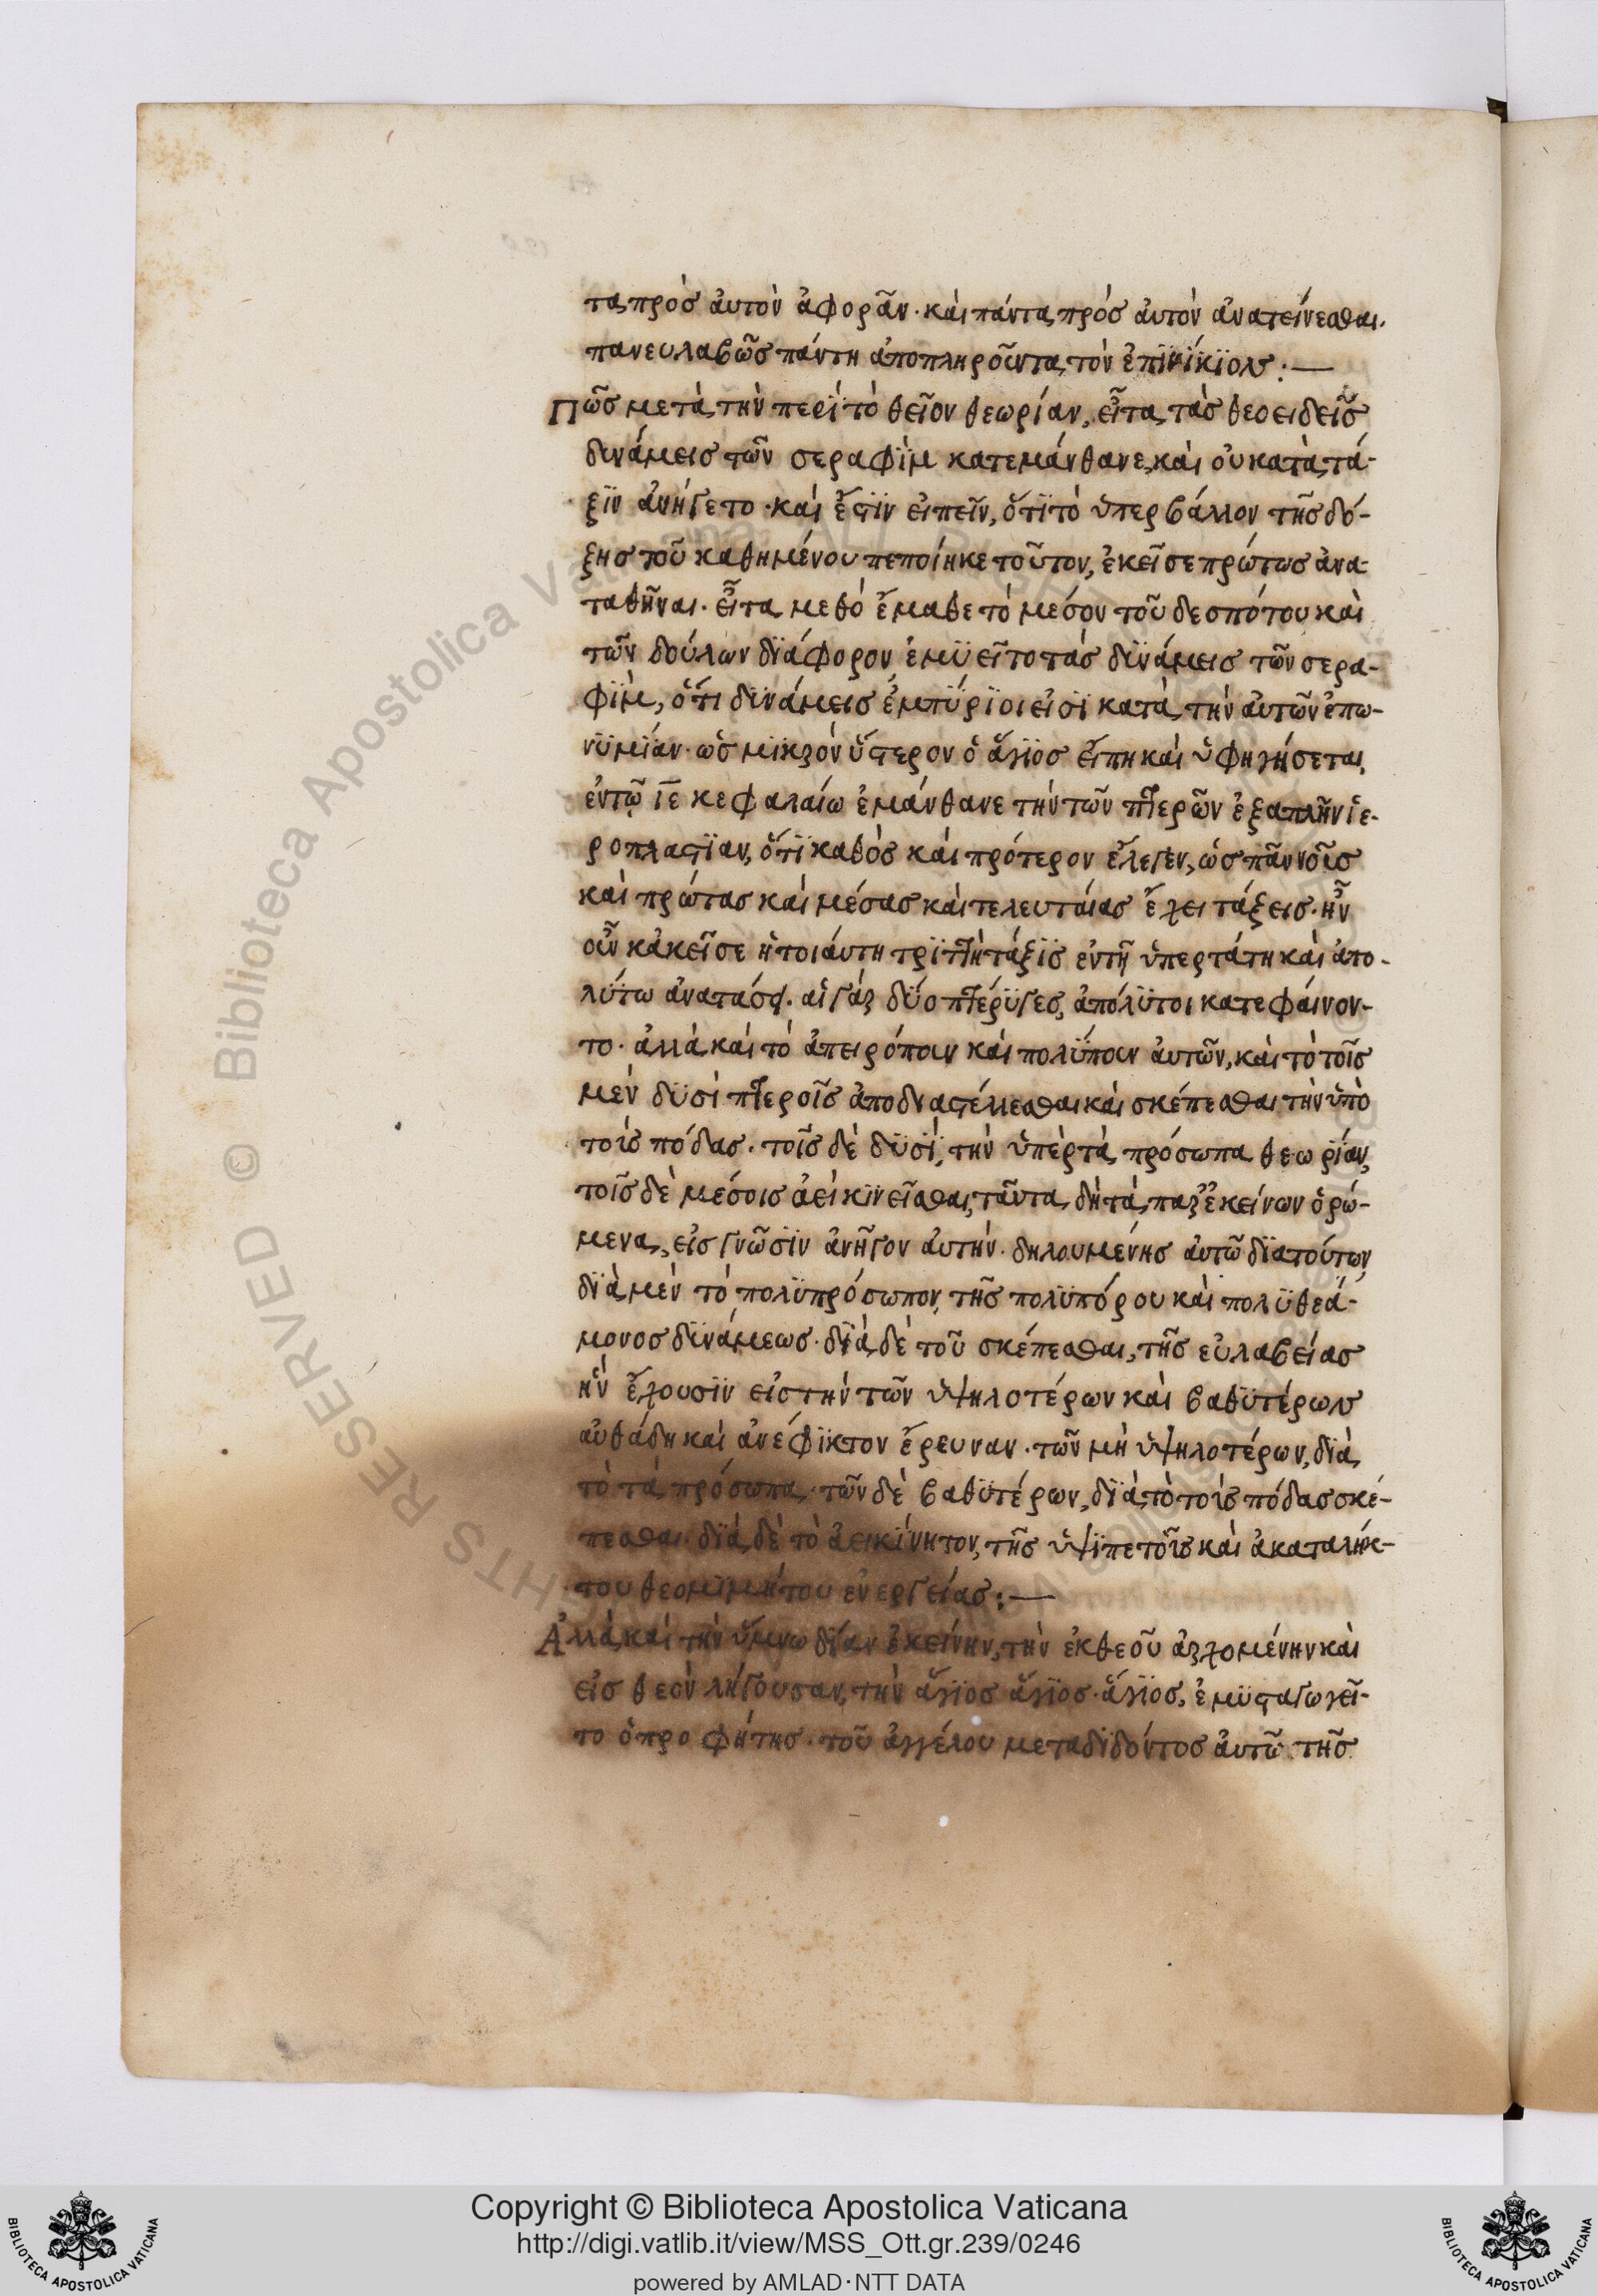 τα πρὸς ἀυτὸν ἀφορᾶν· καὶ πάντα πρὸς ἀυτὸν ἀνατείνεσθαι.
πανευλαβῶς πάντη ἀποπληροῦντα τὸν ἐπϊνίκϊον :—
Πῶς μετὰ τὴν περὶ τὸ θεῖον θεωρίαν, εἶτα τὰς θεοειδεῖς
δυνάμεις τῶν σεραφὶμ κατεμάνθανε, καὶ οὐ κατὰ τά-
ξϊν ἀνήγετο· καὶ ἔστϊν εἰπεῖν, ὅτϊ τὸ ὑπερβάλλον τῆς δό-
ξης τοῦ καθημένου πεποίηκε τοῦτον, ἐκεῖσε πρώτως ἀνα
ταθῆναι. εἶτα μεθὸ ἔμαθε τὸ μέσον τοῦ δεσπότου καὶ
τῶν δούλων δϊάφορον, ἐμϋεῖτο τὰς δϋνάμεις τῶν σερα-
φϊμ, ὅτι δϋνάμεις ἐμπύρϊοι εἰσϊ κατὰ τὴν ἀυτῶν ἐπω-
νϋμίαν· ὡς μϊκρὸν ὕστερον ὁ ἅγϊος εἴπη καὶ ὑφηγήσεται
ἐν τῷ ιε κεφαλαίω ἐμάνθανε τὴν τῶν πτερῶν ἐξαπλῆν ἱε-
ροπλαστϊαν, ὅτϊ καθὸς καὶ πρότερον ἔλεγεν, ὡς πᾶν νοῦς
καὶ πρώτας καὶ μέσας καὶ τελευταίας ἔχει τάξεις· ἦν
οὖν κἀκεῖσε ἡ τοιάυτη τρϊττὴ τάξϊς ἐν τῆ ὑπερτάτη καὶ ἀπο-
λύτω ἀνατάσει. αἱ γὰρ δύο πτέρϋγες, ἀπόλϋτοι κατεφάινον-
το· ἀλλὰ καὶ τὸ ἀπειρόπουν καὶ πολύπουν ἀυτῶν, καὶ τὸ τοῖς
μὲν δϋσὶ πτεροῖς ἀποδιαστέλλεσθαι καὶ σκέπεσθαι τὴν ὑπὸ
τοὺς πόδας· τοῖς δὲ δϋσὶ, τὴν ὑπὲρ τὰ πρόσωπα θεωρίαν,
τοῖς δὲ μέσοις ἀεὶ κϊνεῖσθαι, ταῦτα δὴ τὰ παρ ἐκείνων ὁρώ-
μενα, εἰς γνῶσϊν ἀνῆγον ἀυτήν· δηλουμένης ἀυτῶ δϊα τούτων,
δϊὰ μὲν τὸ πολϋπρόσωπον, τῆς πολϋπόρου καὶ πολϋθεά-
μονος δϋνάμεως· δϊὰ δὲ τοῦ σκέπεσθαι, τῆς εὐλαβείας
ἣν ἔχουσϊν εἰς τὴν τῶν ὑψηλοτέρων καὶ βαθϋτέρων
αὐθάδη καὶ ἀνέφϊκτον ἔρευναν· τῶν μὴ ὑψηλοτέρων, δϊὰ
τὸ τὰ πρόσωπα· τῶν δὲ βαθϋτέρων, δϊὰ τὸ τοὺς πόδας σκέ-
πεσθαι· δϊὰ δὲ τὸ ἀεικίνητον, τῆς ὑψϊπετοῦς καὶ ἀκαταλήκ-
του θεομϊμήτου ἐνεργείας :—
Ἀλλὰ καὶ τὴν ὑμνωδίαν ἐκείνην, τὴν ἐκ θεοῦ ἀρχομένην καὶ
εἰς θεὸν λήγουσαν, τὴν ἅγϊος ἅγϊος· ἅγϊος, ἐμϋσταγωγεῖ-
το ὁ προφήτης· τοῦ ἀγγέλου μεταδϊδόντος ἀυτῶ τῆς
Biblioteca Apostolica Vaticana
RIGHTS RESERVED ©
Copyright © Biblioteca Apostolica Vaticana
http://digi.vatlib.it/view/MSS_Ott.gr.239/0246
powered by AMLAD·NTT DATA
BIBLIOTECA APOSTOLICA VATICANA
BIBLIOTECA APOSTOLICA VATICANA